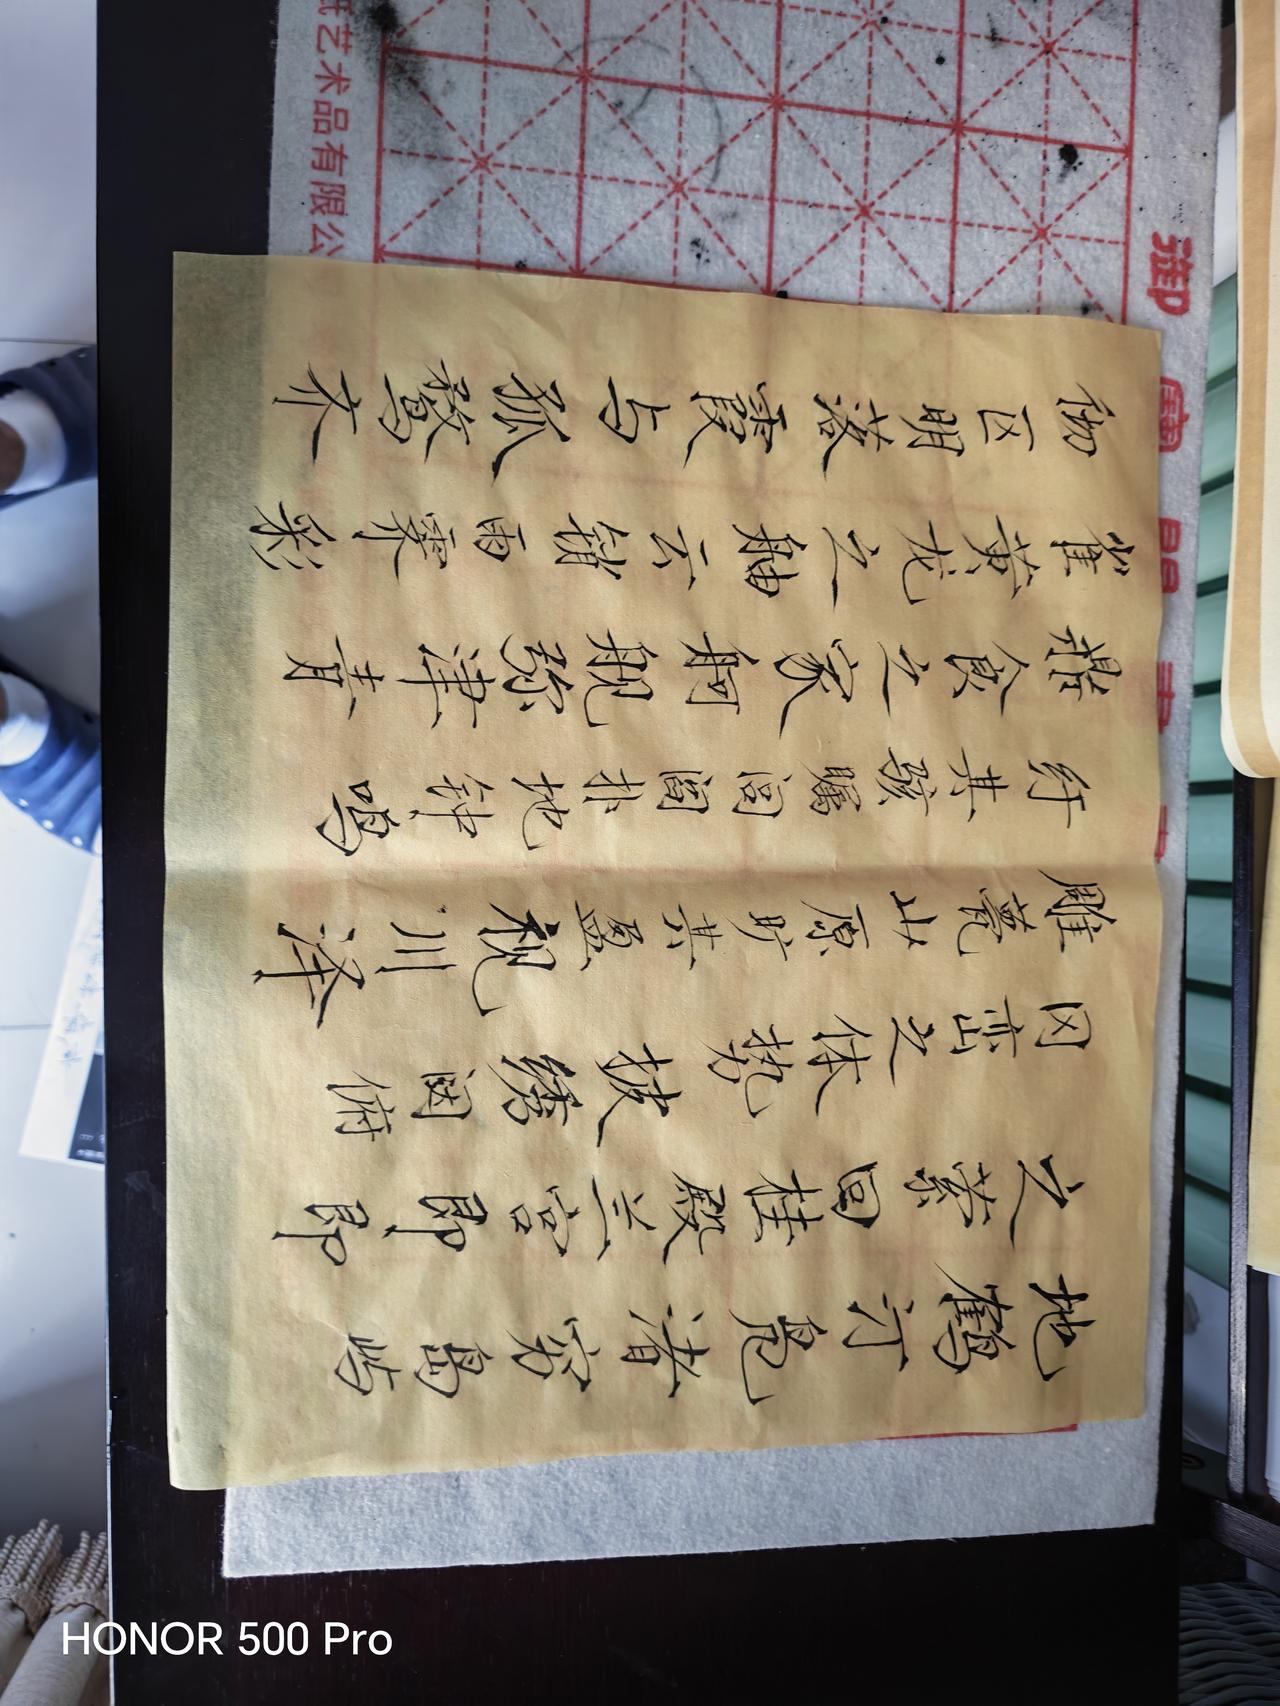 地鹤汀凫渚穷岛屿
之萦回桂殿兰宫即即
冈峦之体势披绣闼俯
雕甍山原旷其盈视川泽
纡其骇瞩闾阎扑地钟鸣
鼎食之家舸舰弥津青
雀黄龙之舳云销雨霁彩
彻区明落霞与孤鹜齐
御
艺术品有限公
HONOR 500 Pro